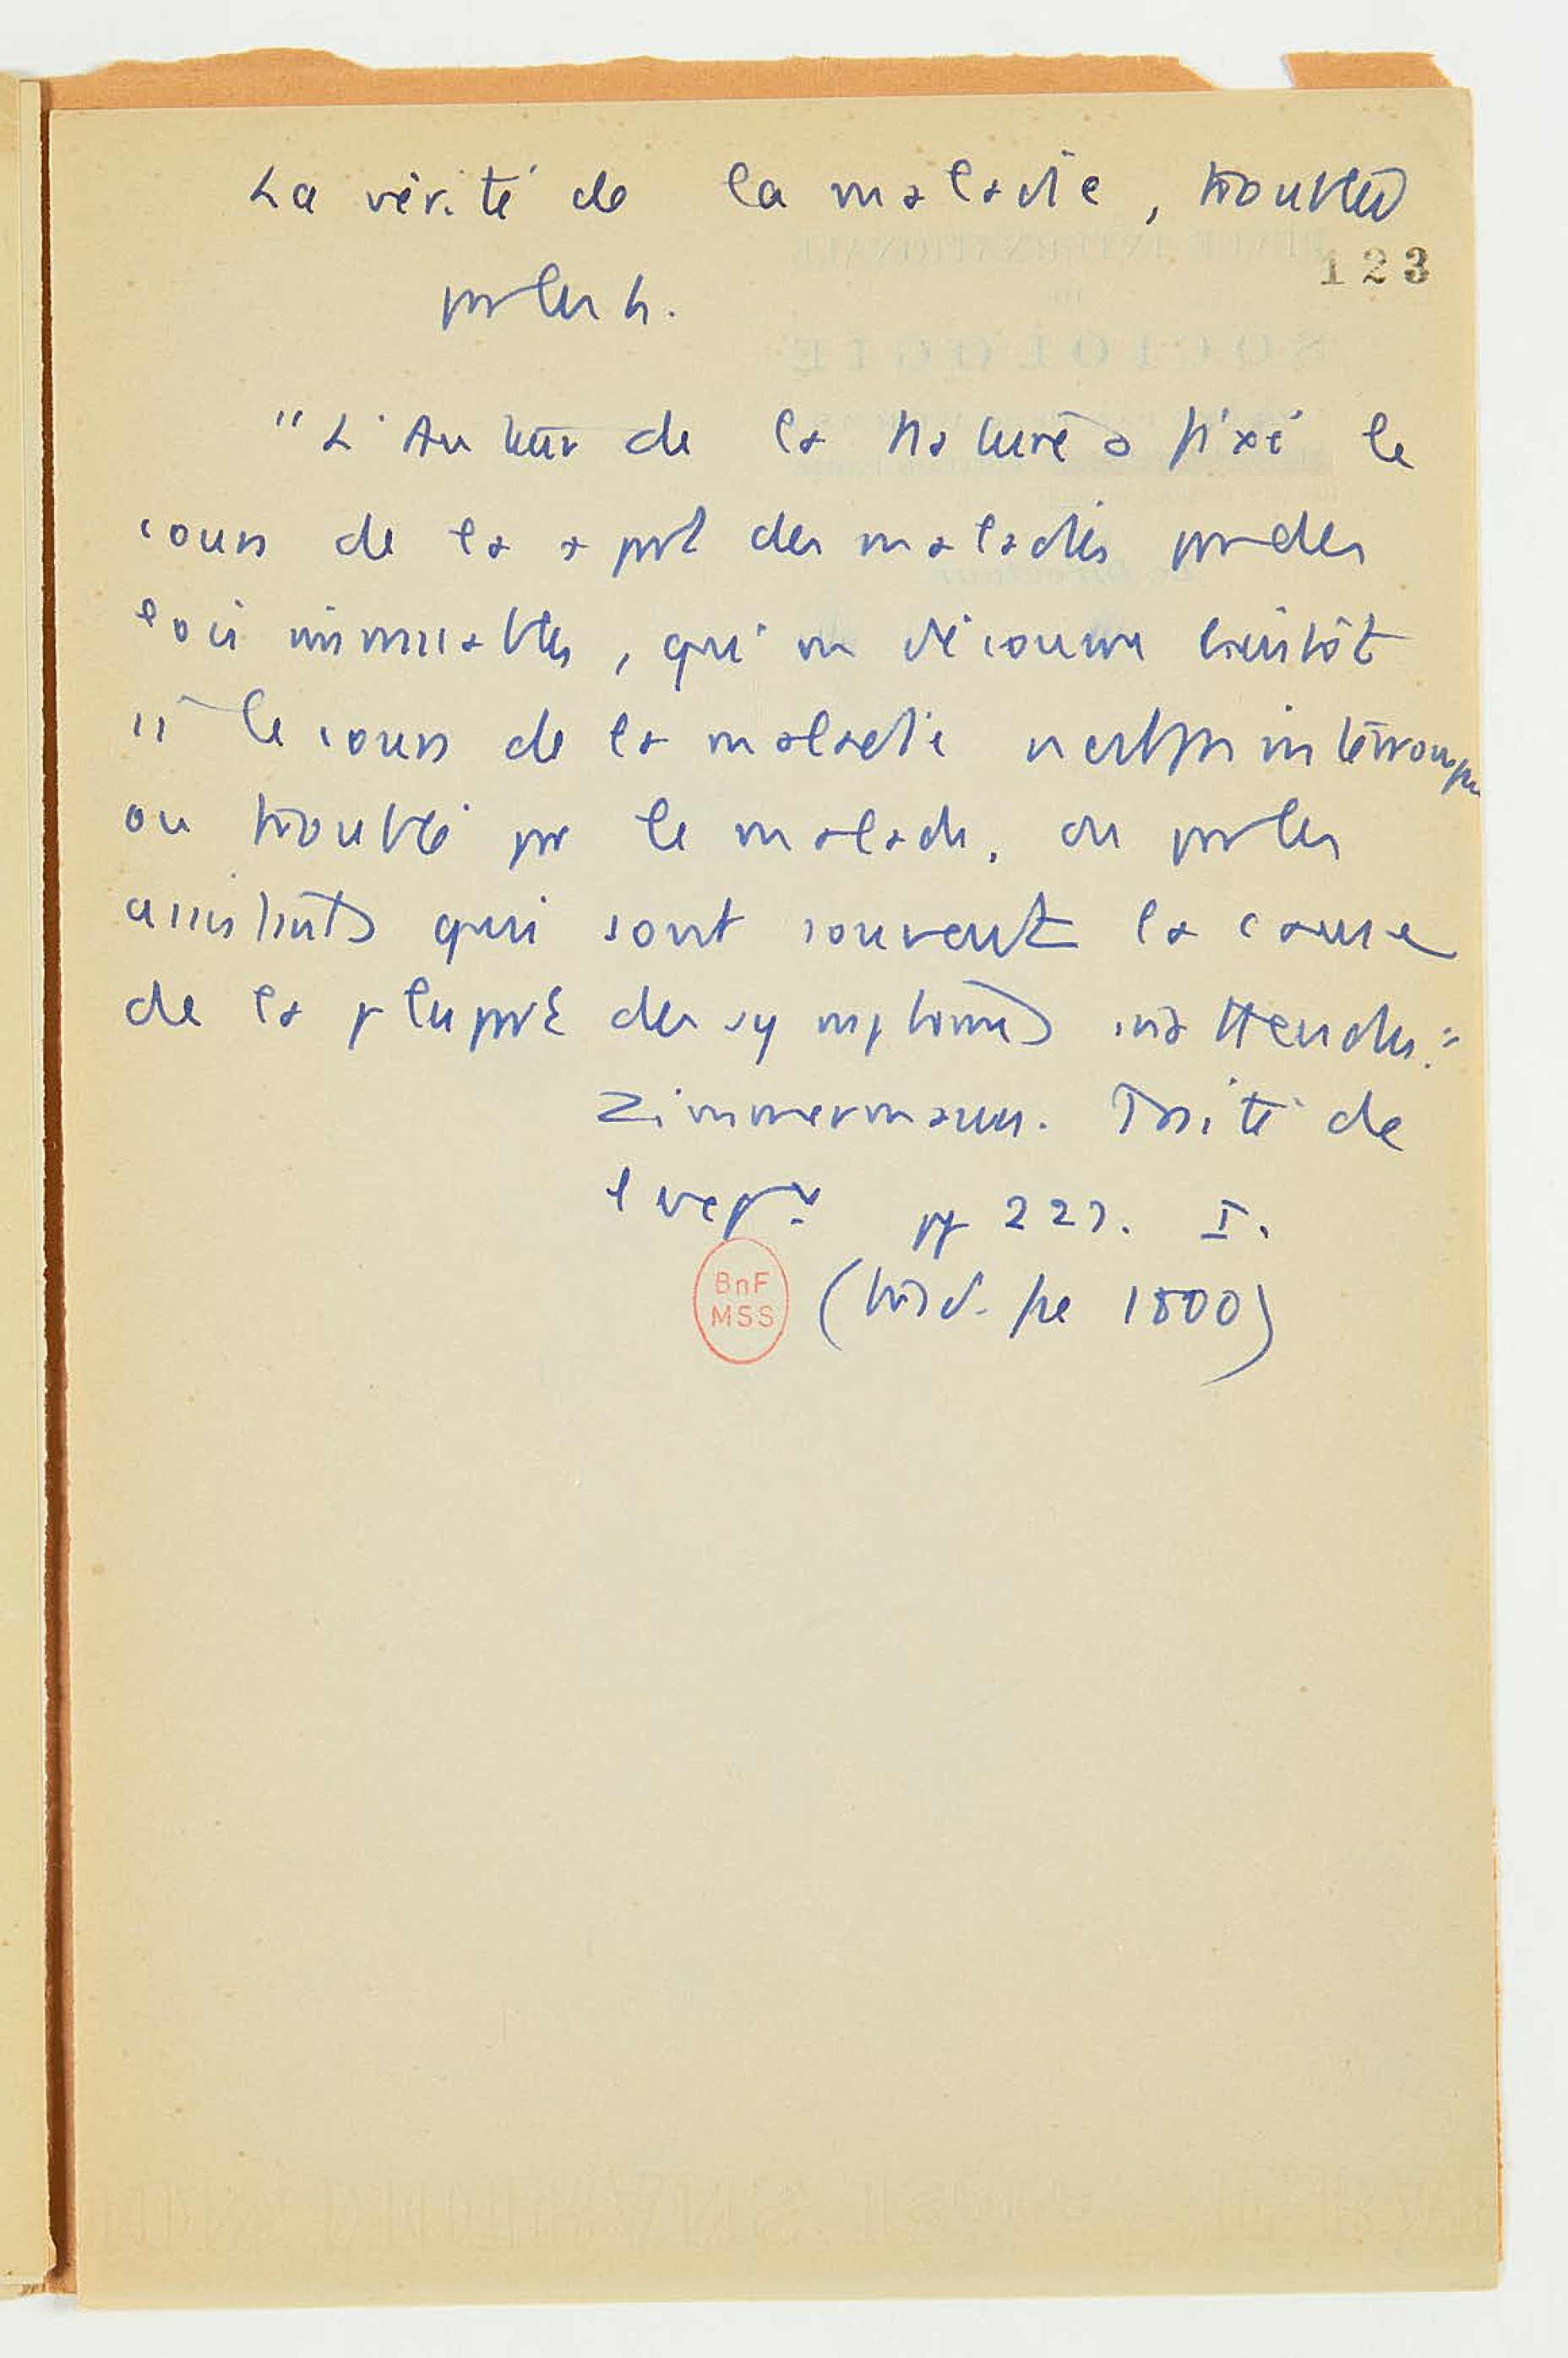 La vérité de la maladie, troublée
123
par les h.
"L'Auteur de la Nature a fixé le
cours de la aprt des maladies par des
lois immuables, qu'on découvre bientôt
si le cours de la maladie n'est pas interrompu
ou troublé par le malade, ou par les
assistants qui sont souvent la cause
de la plupart des symptômes inattendus."
Zimmermann. Traité de
l'expce pg 227. I.
BnF
MSS
(trad. fse 1800)